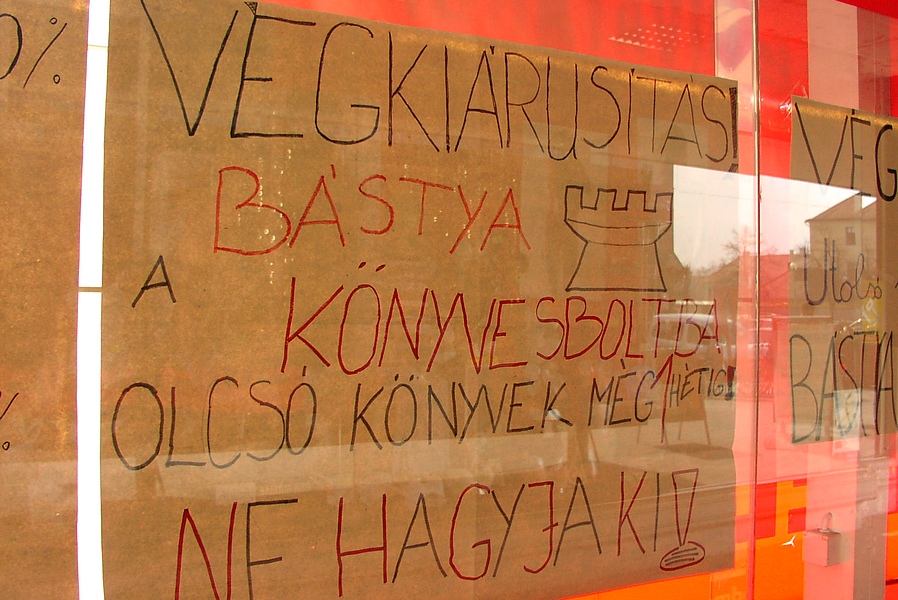 %
VÉGKIÁRUSÍTÁS!
BÁSTYA
A
KÖNYVESBOLTBA
OLCSÓ KÖNYVEK MÉG 1 HÉTIG!
NE HAGYJA KI!
%
VÉG
Utolsó
BÁSTYA